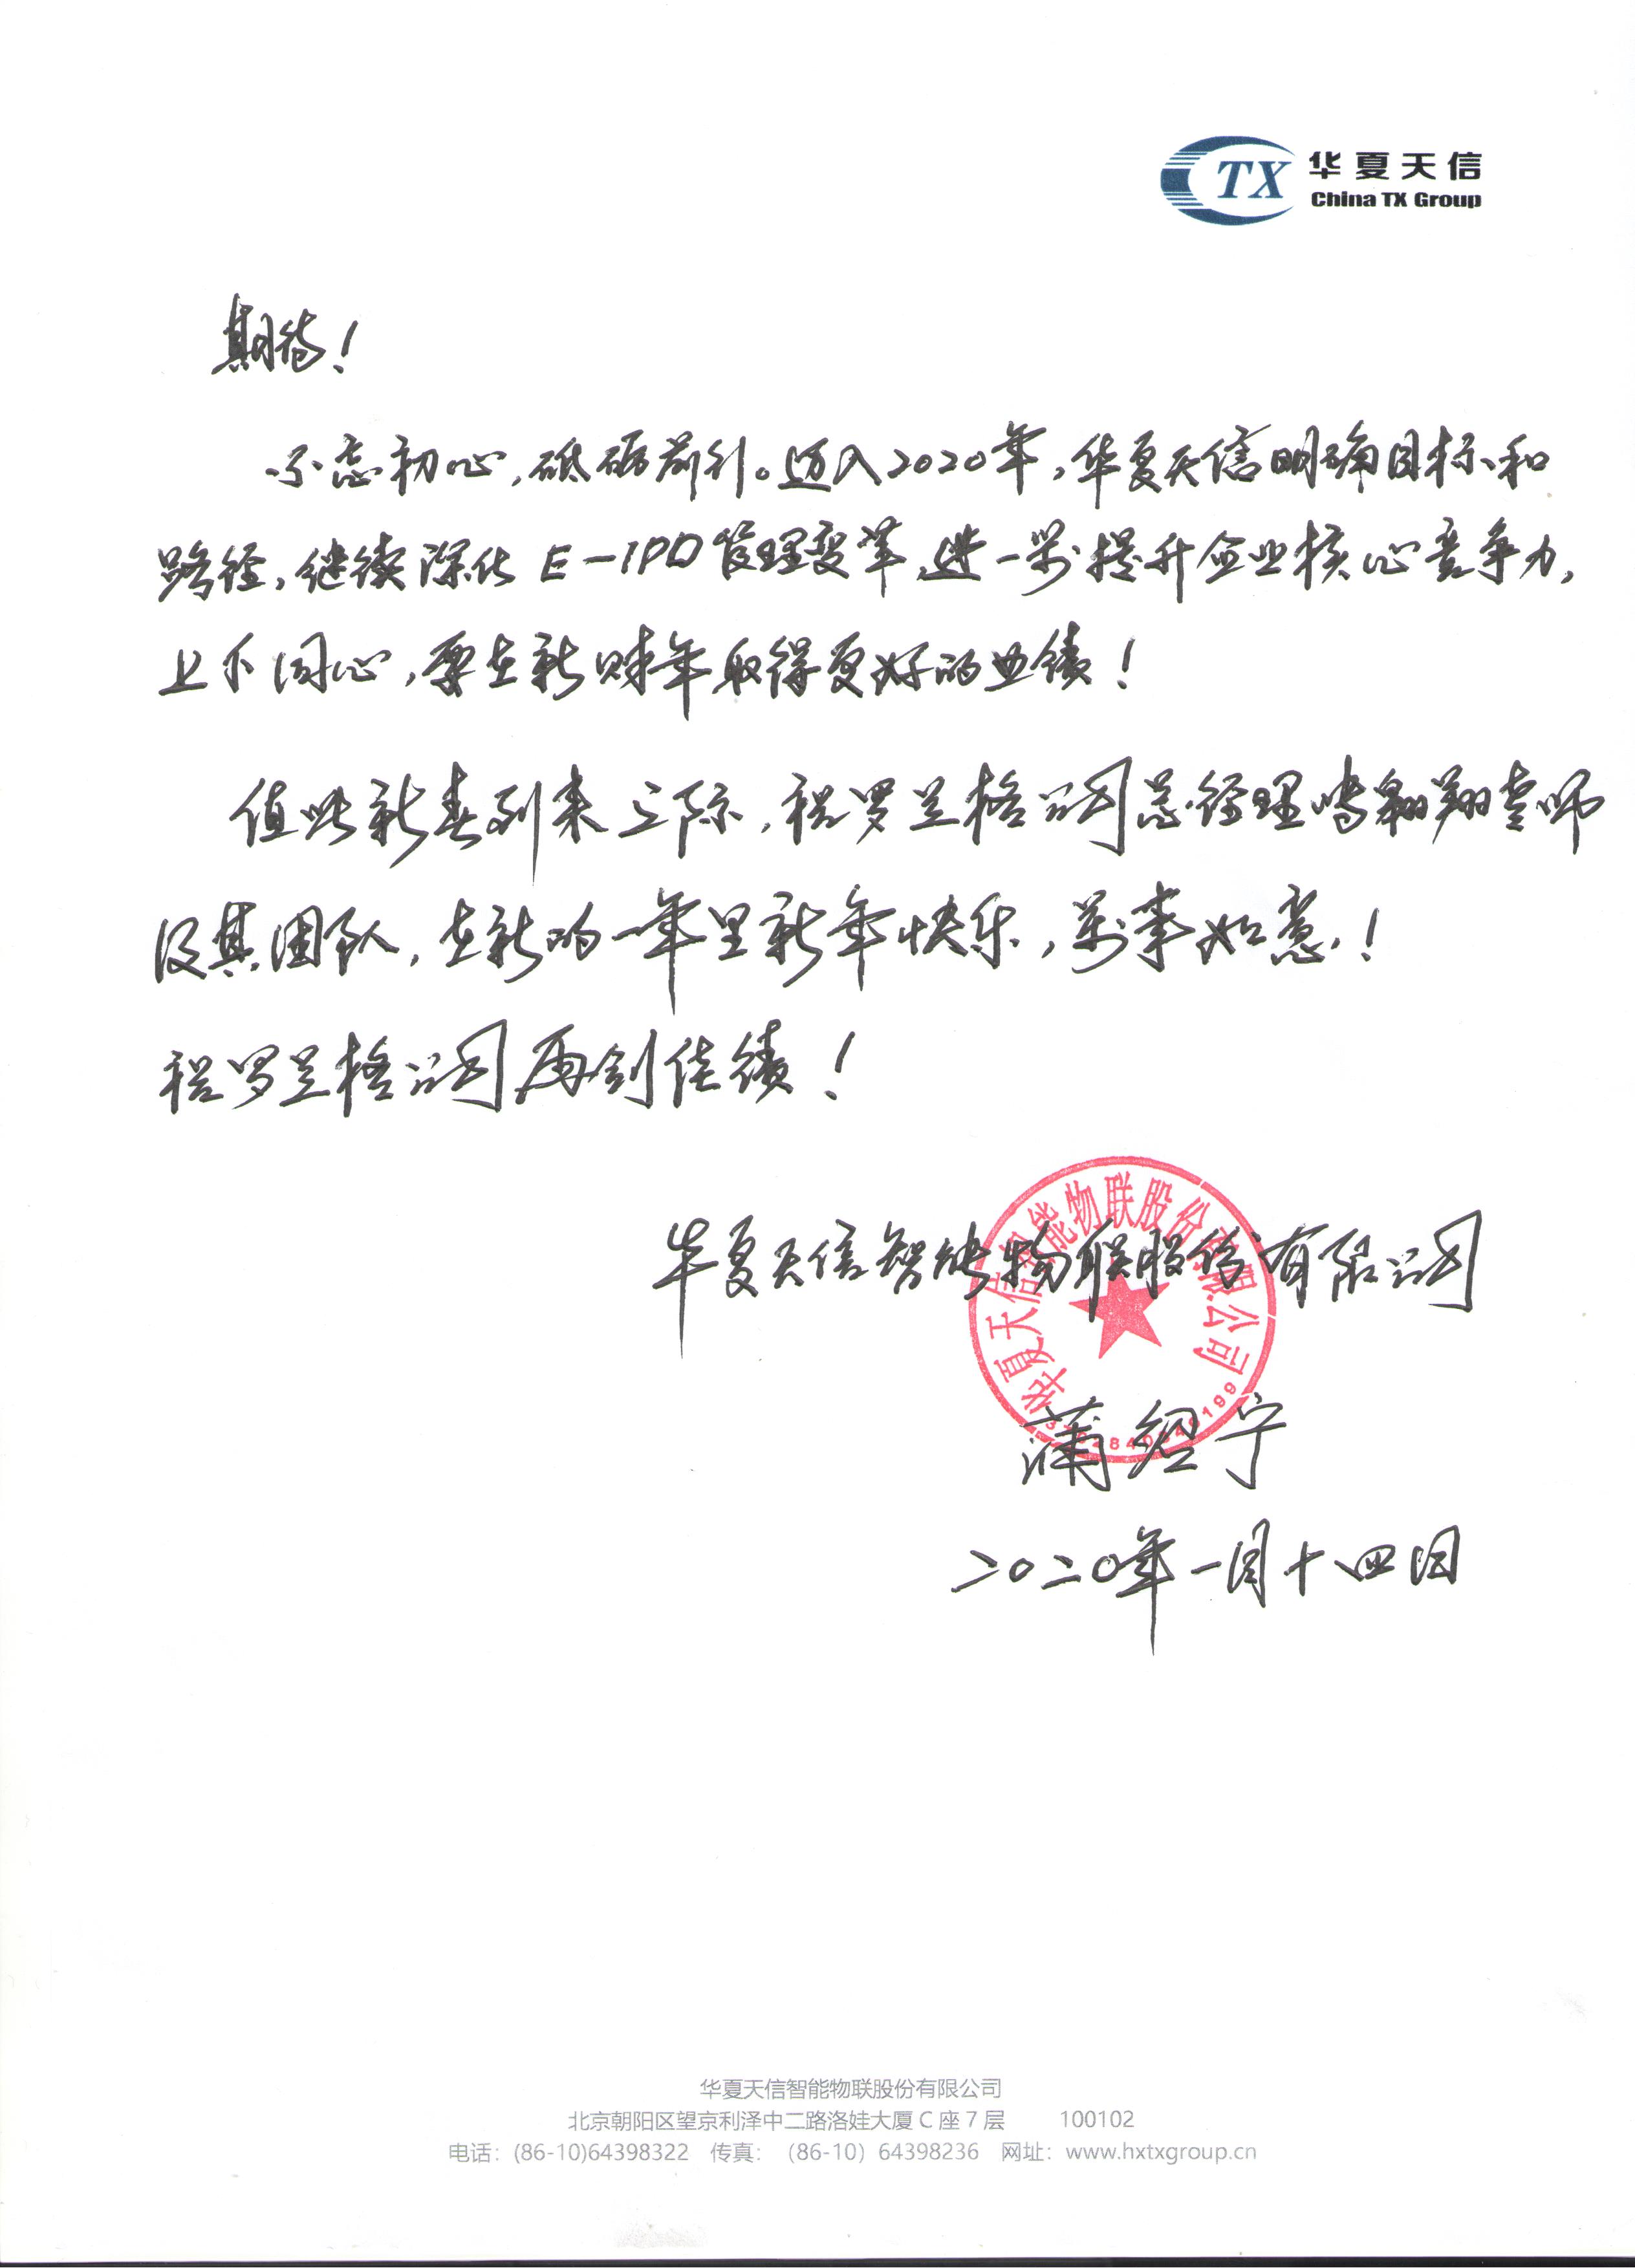 TX 华夏天信
China TX Group
期待！
不忘初心，砥砺前行。迈入2020年，华夏天信明确目标和
路径，继续深化E-IPD管理变革，进一步提升企业核心竞争力，
上下同心，要在新财年取得更好的业绩！
值此新春到来之际，祝罗兰格公司总经理 翱翔老师
及其团队，在新的一年里新年快乐，万事如意！
祝罗兰格公司再创佳绩！
华夏天信智能物联股份有限公司
华夏天信智能物联股份有限公司
蒲绍宁
二〇二〇年一月十四日
华夏天信智能物联股份有限公司
北京朝阳区望京利泽中二路洛娃大厦C座7层 100102
电话：(86-10)64398322 传真：（86-10）64398236 网址：www.hxtxgroup.cn